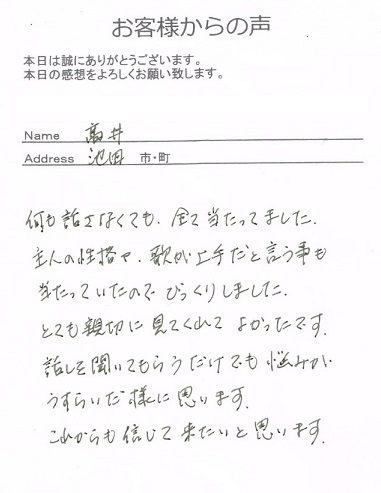 お客様からの声
本日は誠にありがとうございます。
本日の感想をよろしくお願い致します。
Name 高井
Address 池田 市・町
何も話さなくても、全て当たってました。
主人の性格や、歌が上手だと言う事も
当たっていたので びっくりしました。
とても親切に見てくれて よかったです。
話しを聞いてもらうだけでも 悩みが
うすらいだ様に思います。
これからも信じて来たいと思います。